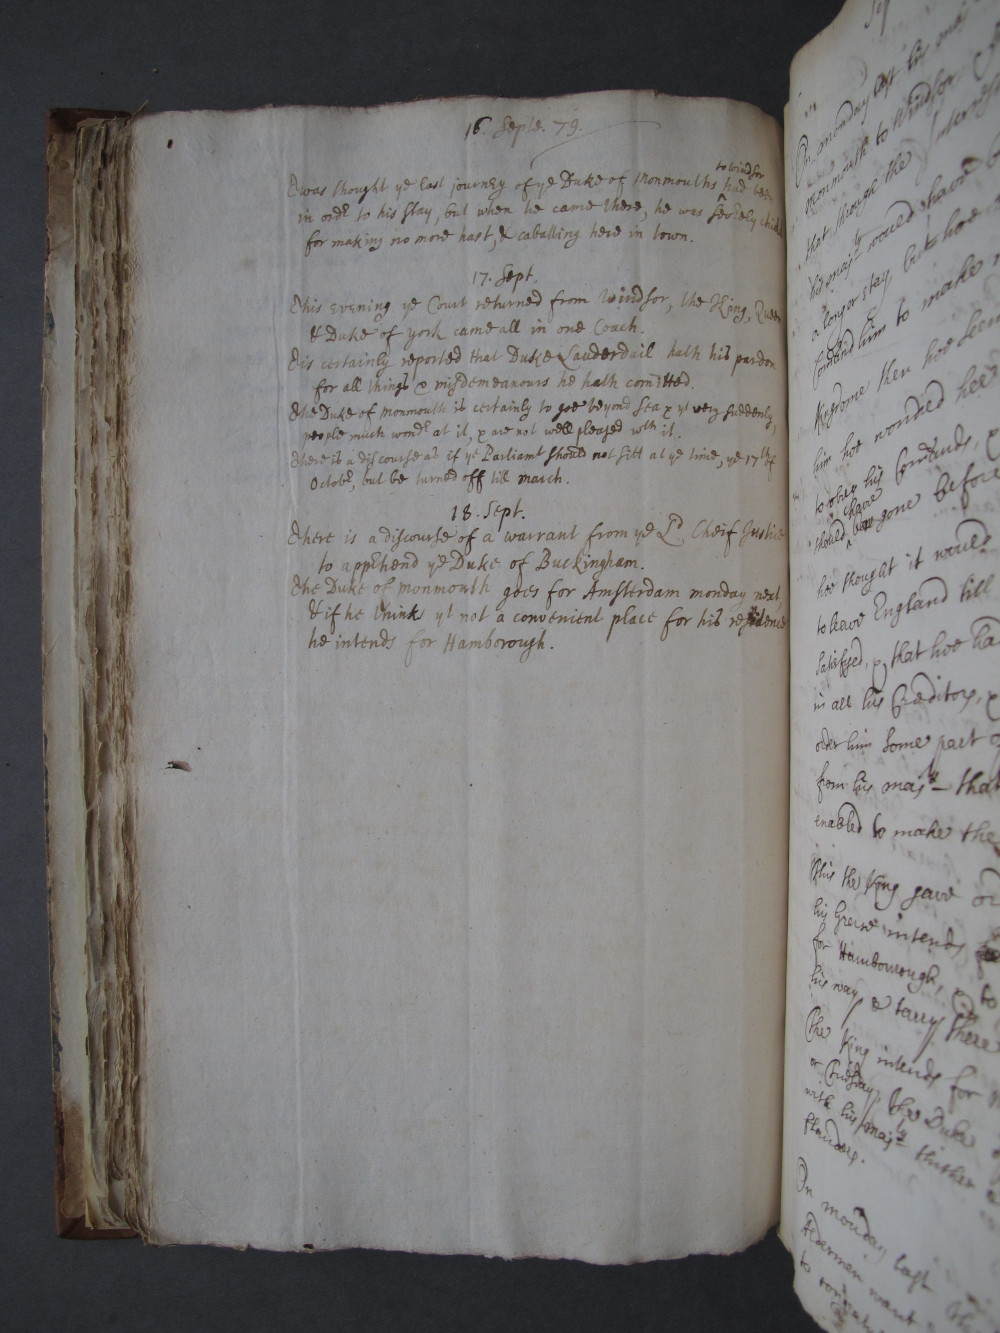 16. Septe. 79.
to windsor
Twas thought ye last journey of ye Duke of Monmouths had been
in ordr to his stay, but when he came there, he was seve'ely chid
for making no more hast, & caballing here in town.
17. Sept.
This evening ye Court returned from Windsor, the King, Queen
& Duke of york came all in one Coach.
Tis certainly reported that Duke Lauderdail hath his pardon
for all things & misdemeanours he hath comitted.
The Duke of monmouth is certainly to goe beyond Sea & yt very suddenly,
people much wondr at it, & are not well pleased wth it.
There is a discourse as if ye Parliamt should not sitt at ye time, ye 17th of
Octobr, but be turned off till march.
18. Sept.
There is a discourse of a warrant from ye Ld. Cheif Justice
to appehend ye Duke of Buckingham.
The Duke of monmouth goes for Amsterdam monday next,
& if he think yt not a convenient place for his residence
he intends for Hamborough.
On monday last his
monmouth to Windsor
that though the
his majty would have
a longer stay, but hee
comand him to make
Kingdome then hee
him hee wondred hee
to obey his Comands, &
have
should gone before
hee thought it would
to leave England till
satisfyed, & that hee ha
in all his Creditors, &
order him some part
from his majty that
enabled to make the
This the King gave
his Grace intends
for Hamborough, & to
his way & tarry there
The King intends for
the Duke
with his majty thither
flanders.
On monday last
Aldermen
to